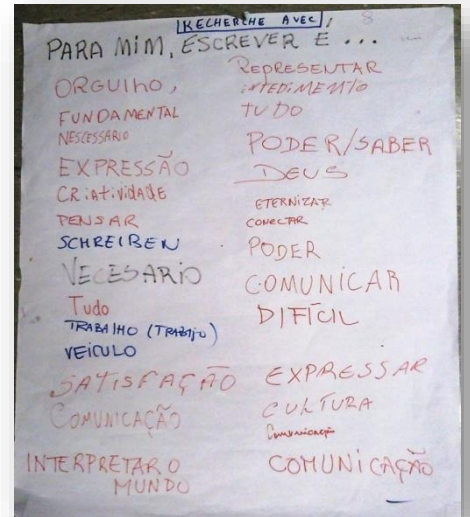 RECHERCHE AVEC
8
PARA MIM, ESCREVER E ...
ORGUIHO,
FUNDAMENTAL
NESCESSARIO
EXPRESSÃO
CRiAtiViDADE
PENSAR
SCHREIBEN
NECESARIO
Tudo
TRABAIHO (TRABAJO)
VEICULO
SATISFAÇÃO
COMUNICAÇÃO
INTERPRETAR O
MUNDO
REPRESENTAR
TUDO
PODER/SABER
DEUS
ETERNIZAR
CONECTAR
PODER
COMUNICAR
DIFÍCIL
EXPRESSAR
CULTURA
Comunicação
COMUNICAÇÃO